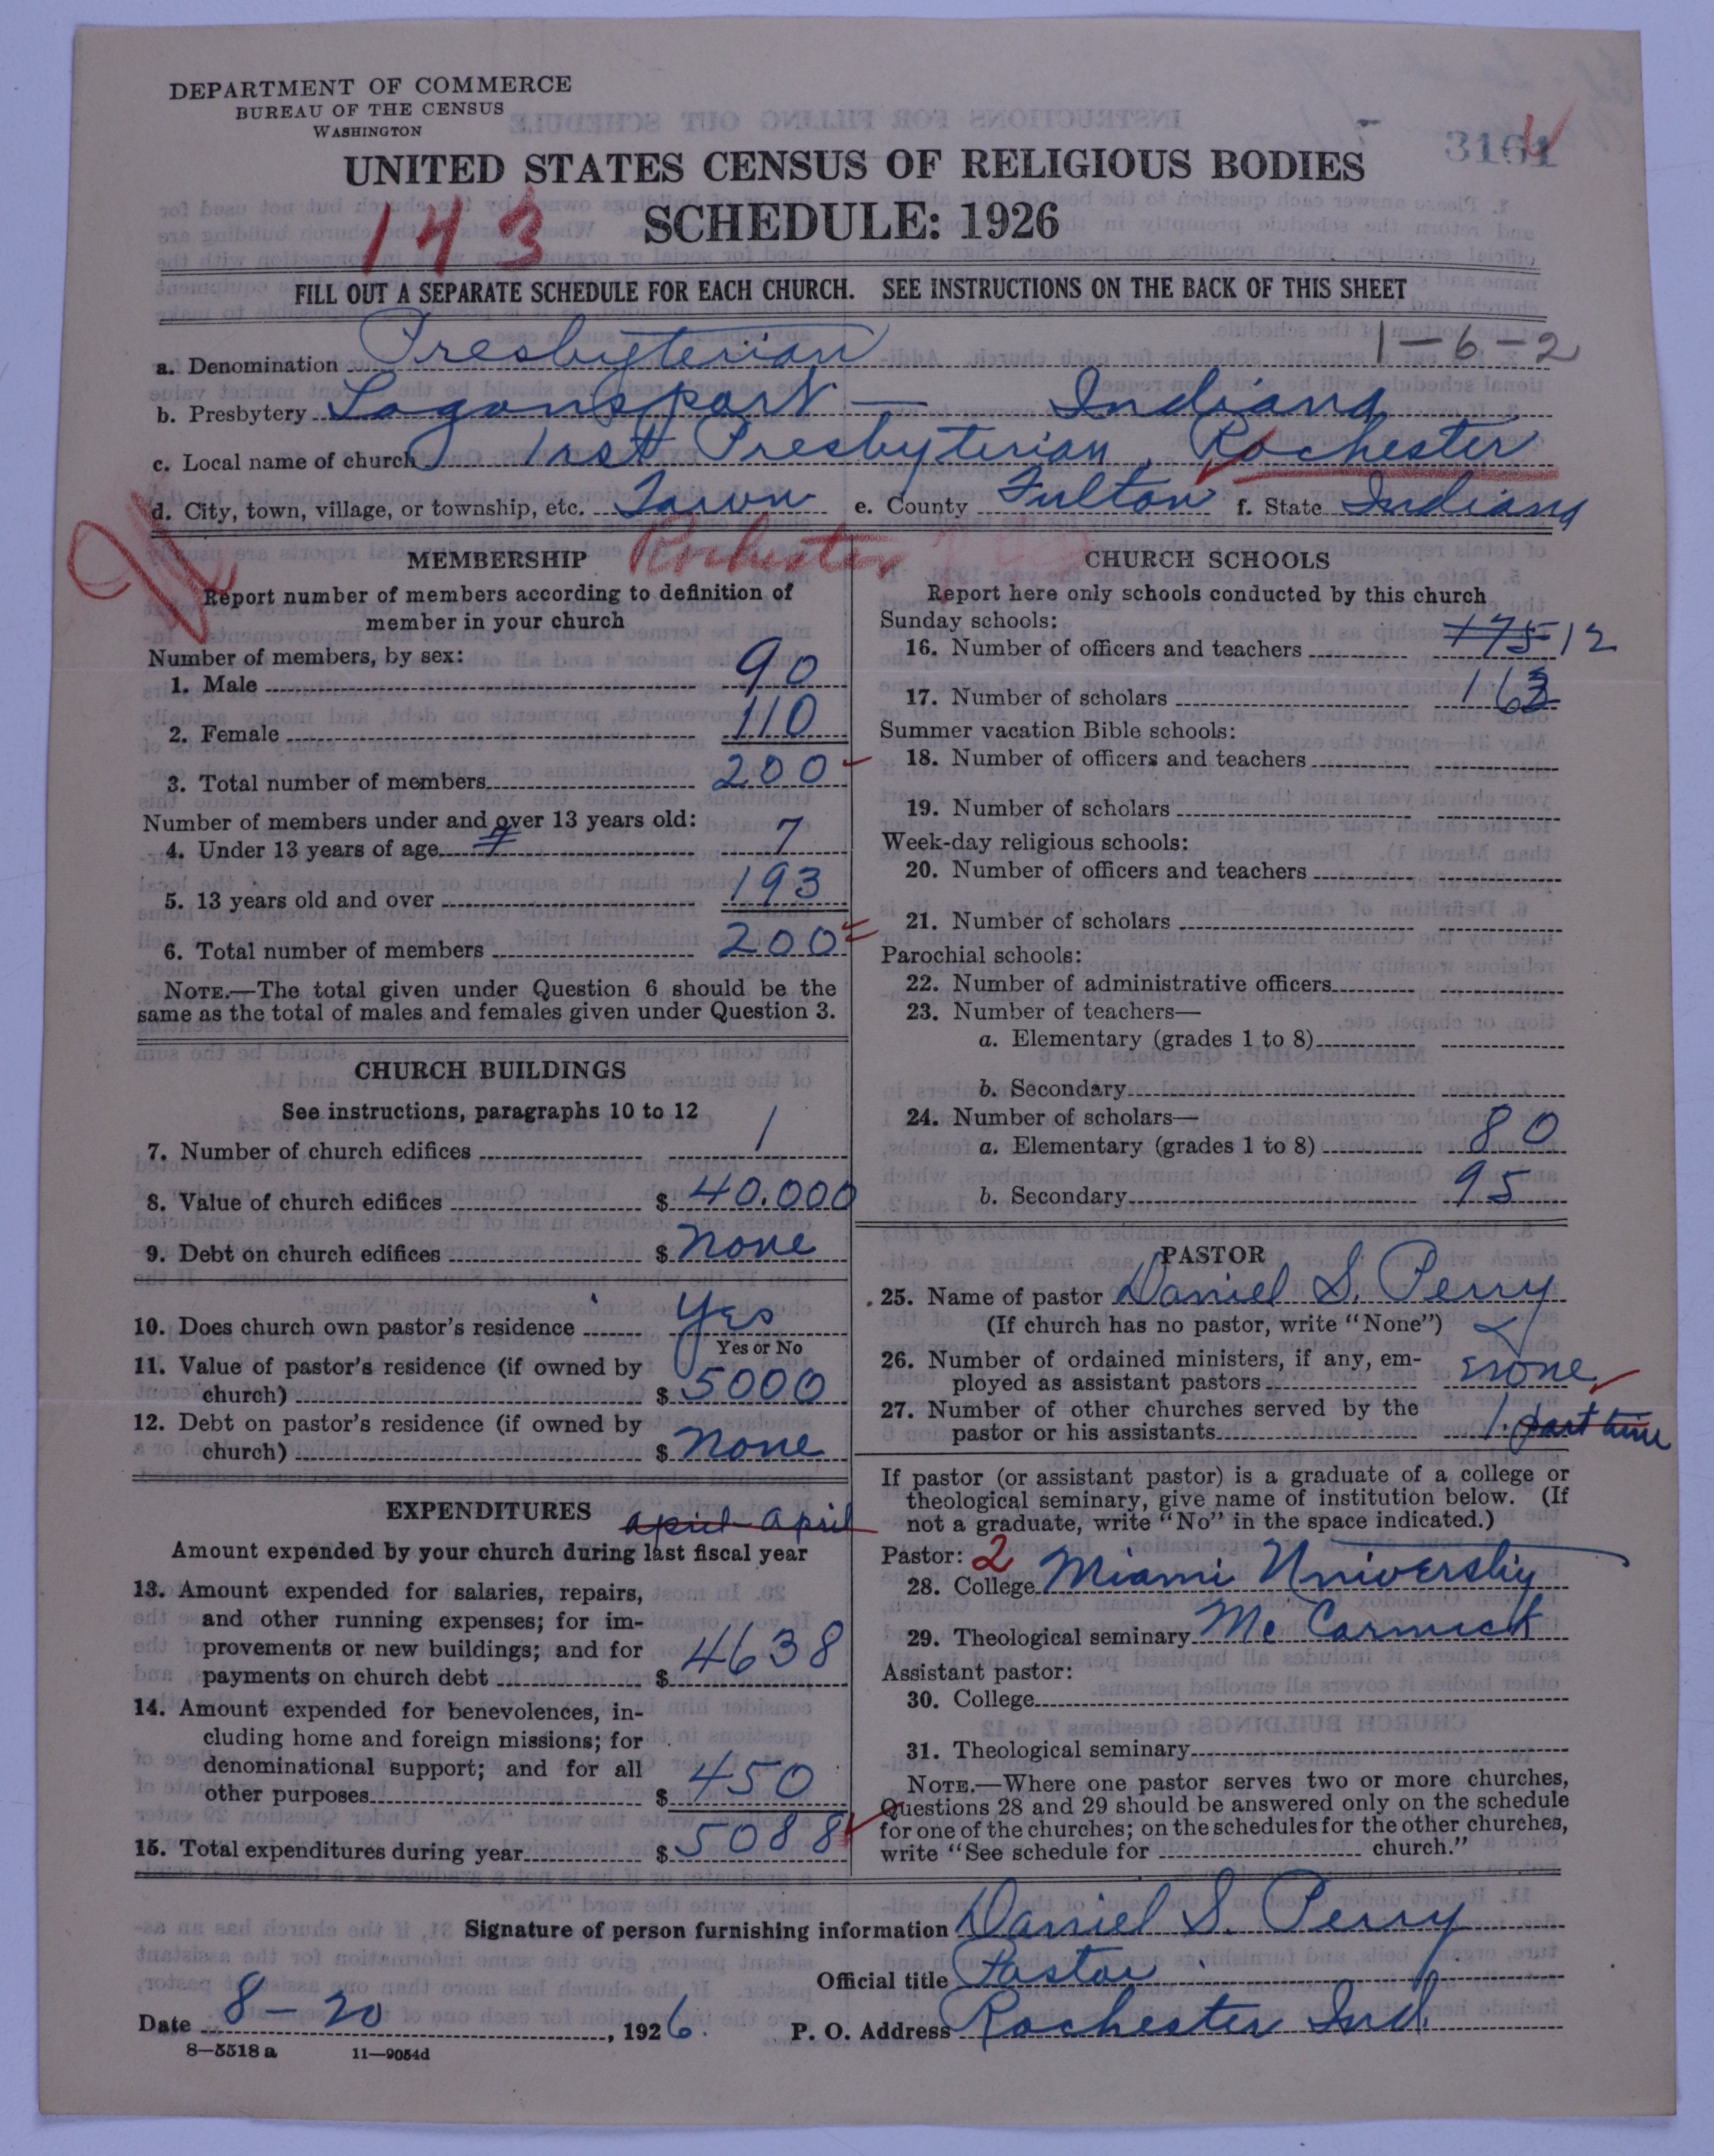 DEPARTMENT OF COMMERCE
BUREAU OF THE CENSUS
WASHINGTON
3161
UNITED STATES CENSUS OF RELIGIOUS BODIES
143
SCHEDULE: 1926
FILL OUT A SEPARATE SCHEDULE FOR EACH CHURCH. SEE INSTRUCTIONS ON THE BACK OF THIS SHEET
1-6-2
a. Denomination Presbyterian
b. Presbytery Logansport — Indiana
c. Local name of church 1st Presbyterian, Rochester
d. City, town, village, or township, etc. Town e. County Fulton f. State Indiana
Rochester
MEMBERSHIP
Report number of members according to definition of
member in your church
Number of members, by sex:
1. Male 90
2. Female 110
3. Total number of members 200
Number of members under and over 13 years old:
4. Under 13 years of age 7 7
5. 13 years old and over 193
6. Total number of members 200
NOTE.—The total given under Question 6 should be the
same as the total of males and females given under Question 3.
CHURCH BUILDINGS
See instructions, paragraphs 10 to 12
7. Number of church edifices 1
8. Value of church edifices $ 40.000
9. Debt on church edifices $ none
10. Does church own pastor's residence Yes
Yes or No
11. Value of pastor's residence (if owned by
church) $ 5000
12. Debt on pastor's residence (if owned by
church) $ none
EXPENDITURES
april april
Amount expended by your church during last fiscal year
13. Amount expended for salaries, repairs,
and other running expenses; for im-
provements or new buildings; and for
payments on church debt $ 4638
14. Amount expended for benevolences, in-
cluding home and foreign missions; for
denominational support; and for all
other purposes $ 450
15. Total expenditures during year $ 5088
CHURCH SCHOOLS
Report here only schools conducted by this church
Sunday schools:
16. Number of officers and teachers 175 12
17. Number of scholars 163
Summer vacation Bible schools:
18. Number of officers and teachers
19. Number of scholars
Week-day religious schools:
20. Number of officers and teachers
21. Number of scholars
Parochial schools:
22. Number of administrative officers
23. Number of teachers—
a. Elementary (grades 1 to 8)
b. Secondary
24. Number of scholars—
a. Elementary (grades 1 to 8) 80
b. Secondary 95
PASTOR
25. Name of pastor Daniel S. Perry
(If church has no pastor, write "None")
26. Number of ordained ministers, if any, em-
ployed as assistant pastors none
27. Number of other churches served by the
pastor or his assistants 1. part time
If pastor (or assistant pastor) is a graduate of a college or
theological seminary, give name of institution below. (If
not a graduate, write "No" in the space indicated.)
Pastor: 2
28. College Miami University
29. Theological seminary Mc Cormick
Assistant pastor:
30. College
31. Theological seminary
NOTE.—Where one pastor serves two or more churches,
Questions 28 and 29 should be answered only on the schedule
for one of the churches; on the schedules for the other churches,
write "See schedule for church."
Signature of person furnishing information Daniel S. Perry
Official title Pastor
Date 8-20, 1926. P. O. Address Rochester Ind.
8—5518 a 11—9054d